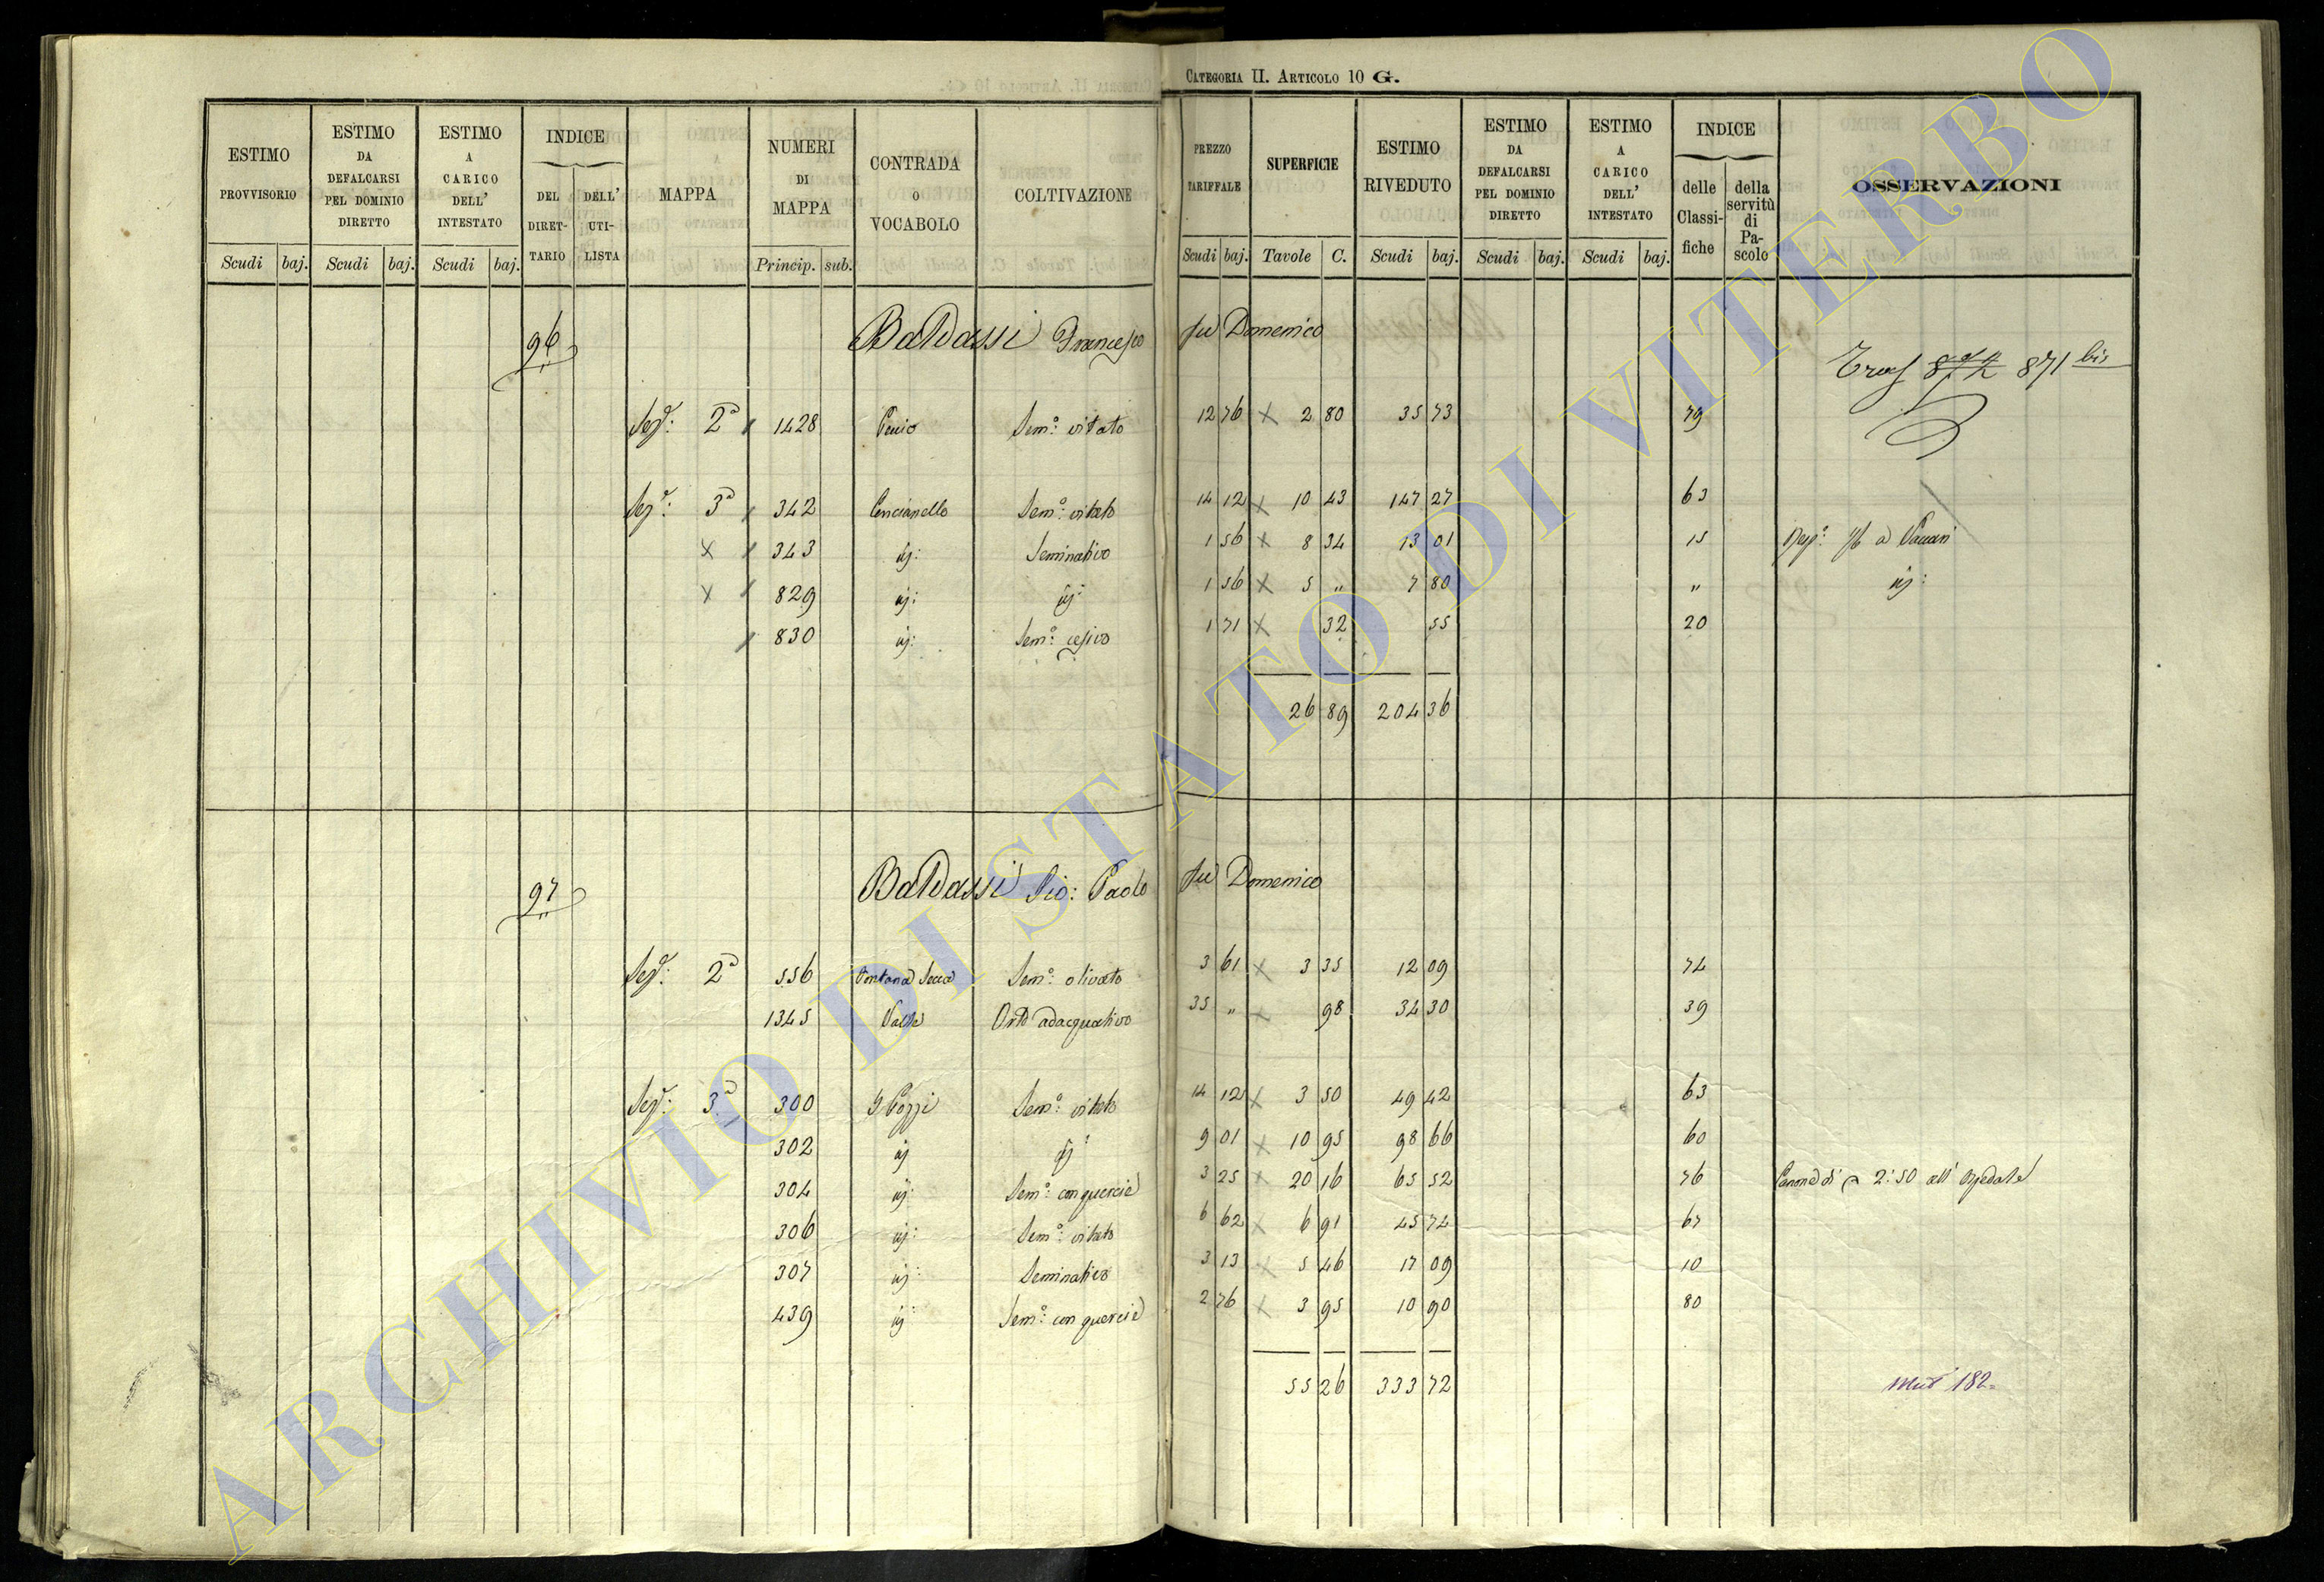 CATEGORIA II. ARTICOLO 10 G.
ESTIMO PROVVISORIO | ESTIMO DA DEFALCARSI PEL DOMINIO DIRETTO | ESTIMO A CARICO DELL' INTESTATO | INDICE DEL DIRETTARIO DELL' UTILISTA | MAPPA | NUMERI DI MAPPA | CONTRADA O VOCABOLO | COLTIVAZIONE | PREZZO TARIFFALE | SUPERFICIE | ESTIMO RIVEDUTO | ESTIMO DA DEFALCARSI PEL DOMINIO DIRETTO | ESTIMO A CARICO DELL' INTESTATO | INDICE delle Classifiche della servitù di Pascolo | OSSERVAZIONI
Scudi baj. Scudi baj. Scudi baj. Princip. sub. Scudi baj. Tavole C. Scudi baj. Scudi baj. Scudi baj.
96 Baldassi Francesco fu Domenico
871 bis
Sez: 2a 1428 Sem: vitato 12 76 x 2 80 35 73 79
Sez: 3a 342 Cencianello Sem: vitato 14 12 x 10 43 147 27 63
x 343 ivi: Seminativo 1 56 x 8 34 13 01 15
x 829 ivi: ivi 1 56 x 5 " 7 80 " ivi:
830 ivi: Sem: cesivo 1 71 x 32 55 20
26 89 204 36
97 Baldassi Gio: Paolo fu Domenico
Sez: 2a 556 Fontana Secca Sem: olivato 3 61 x 3 35 12 09 74
1345 Valle Orto adacquativo 35 " x 98 34 30 39
Sez: 3a 300 I Pozzi Sem: vitato 14 12 x 3 50 49 42 63
302 ivi ivi 9 01 x 10 95 98 66 60
304 ivi: Sem: con quercie 3 25 x 20 16 65 52 76 Canone di 2:50 all' Ospedale
306 ivi: Sem: vitato 6 62 x 6 91 45 74 67
307 ivi: Seminativo 3 13 x 5 46 17 09 10
439 ivi Sem: con quercie 2 76 x 3 95 10 90 80
55 26 333 72
182
ARCHIVIO DI STATO DI VITERBO